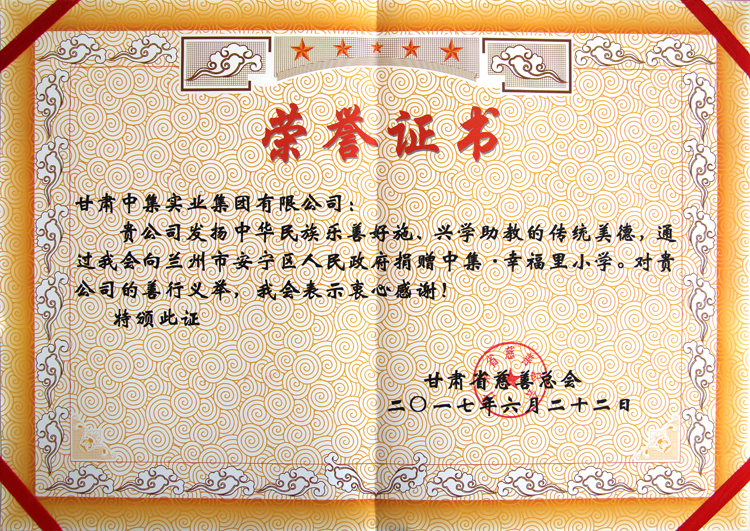 荣誉证书
甘肃中集实业集团有限公司：
贵公司发扬中华民族乐善好施、兴学助教的传统美德，通
过我会向兰州市安宁区人民政府捐赠中集·幸福里小学。对贵
公司的善行义举，我会表示衷心感谢！
特颁此证
甘肃省慈善总会
二〇一七年六月二十二日